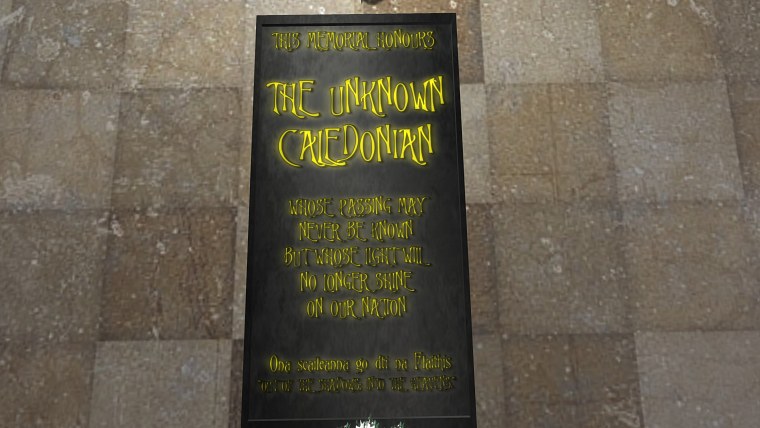 THIS MEMORIAL HONOURS
THE UNKNOWN
CALEDONIAN
WHOSE PASSING MAY
NEVER BE KNOWN
BUT WHOSE LIGHT WILL
NO LONGER SHINE
ON OUR NATION
Ona scáileanna go dtí na Flaithis
"OUT OF THE SHADOWS INTO THE HEAVENS"